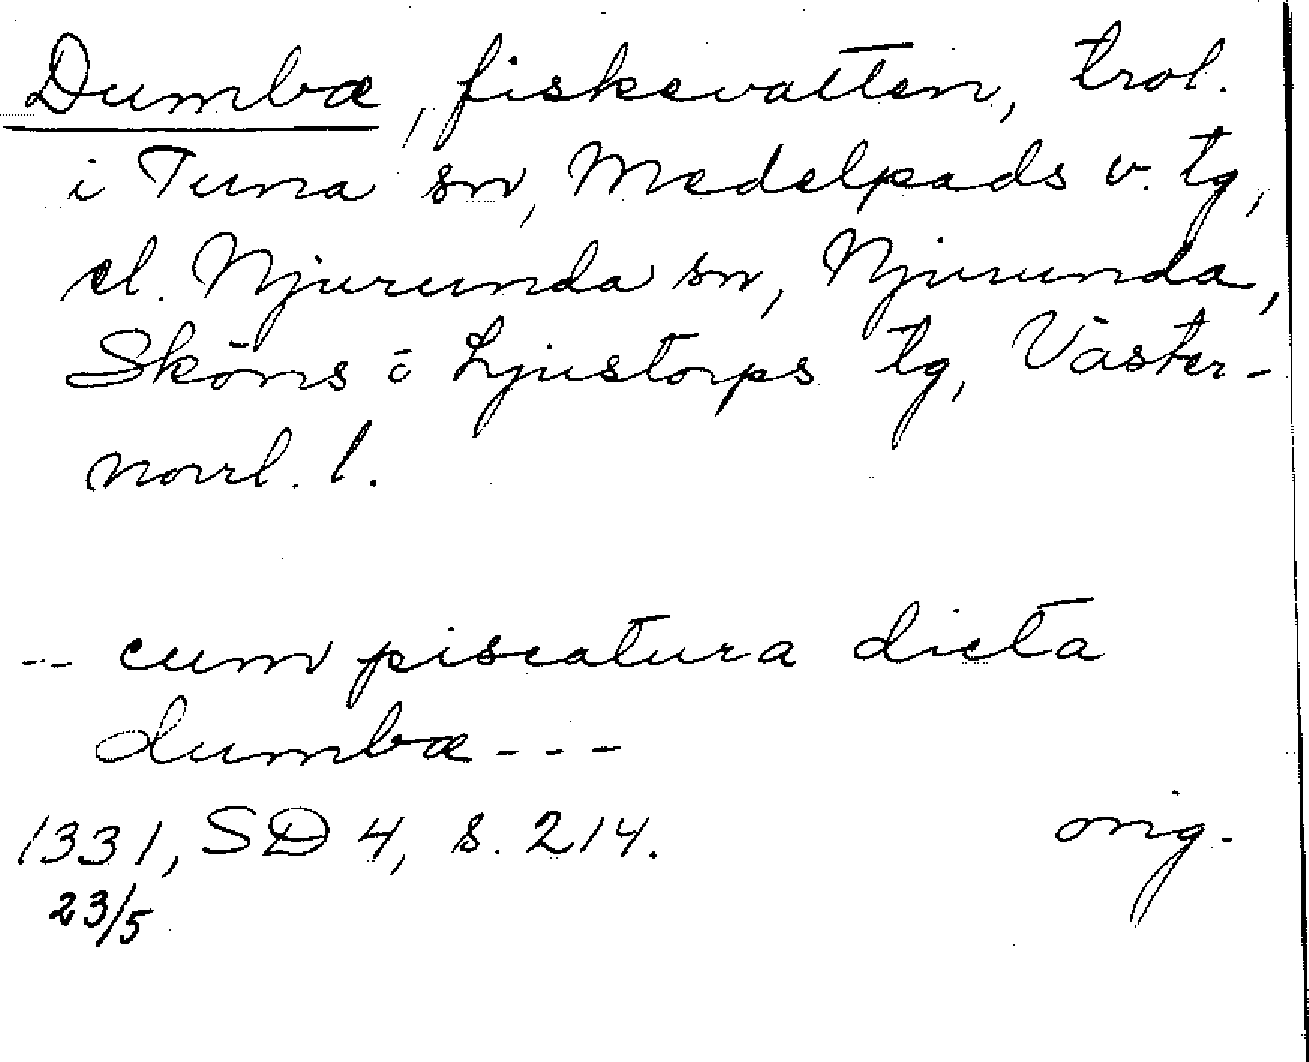 Dumbæ, fiskevatten, trol.
i Tuna sn, Medelpads v. tg,
el. Njurunda sn, Njurunda,
Sköns o Ljustorps tg, Väster-
norrl. l.
-- cum piscatura dicta
dumbæ ---
1331, SD 4, s. 214. orig.
23/5